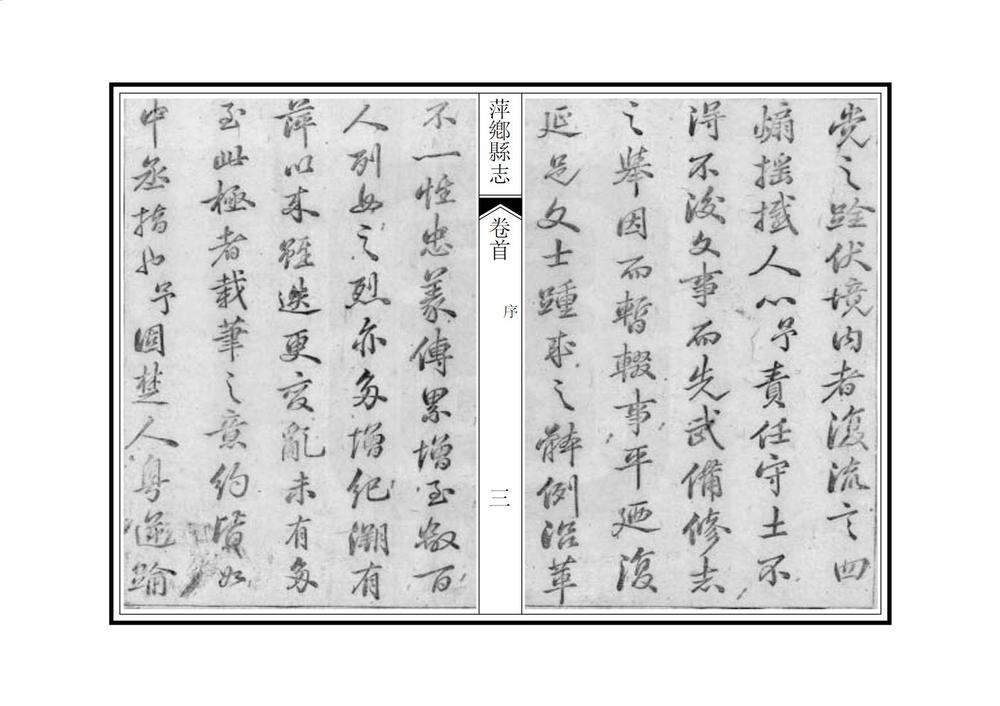 党之跧伏境内者復流言四
煽搖撼人心予責任守土不
得不後文事而先武備修志
之舉因而暫輟事平廼復
延邑文士踵成之體例沿革
萍鄉縣志
卷首
序
三
不一惟忠義傳累增至數百
人列女之烈亦多增纪溯有
萍以来雖迭更变亂未有多
至此極者載筆之意約如
中丞指也予固楚人粤逆踰